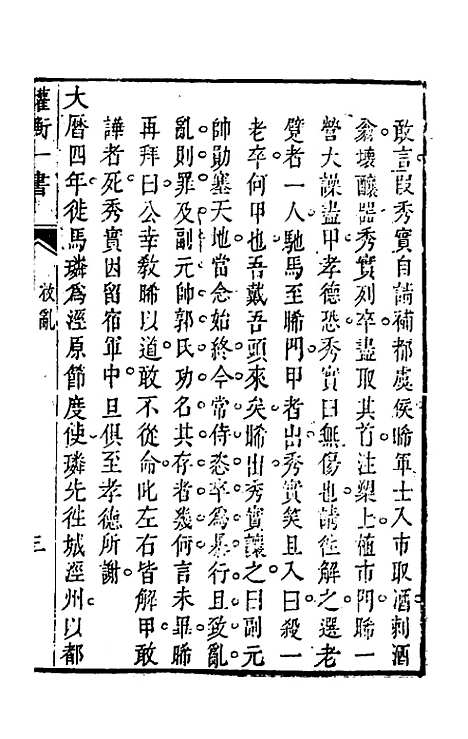 敢言段秀實自請補都虞侯晞軍士入市取酒刺酒
翁壞釀器秀實列卒盡取其首注槊上植市門晞一
營大譟盡甲孝德恐秀實曰無傷也請徃解之選老
躄者一人馳馬至晞門甲者出秀實笑且入曰殺一
老卒何甲也吾戴吾頭來矣晞出秀實讓之曰副元
帥勛塞天地當念始終今常侍恣卒爲暴行且致亂
亂則罪及副元帥郭氏功名其存者幾何言未畢晞
再拜曰公幸敎晞以道敢不從命叱左右皆解甲敢
譁者死秀實因留宿軍中旦俱至孝德所謝
大曆四年徙馬璘爲涇原節度使璘先徃城涇州以都
權衡一書
救亂
三